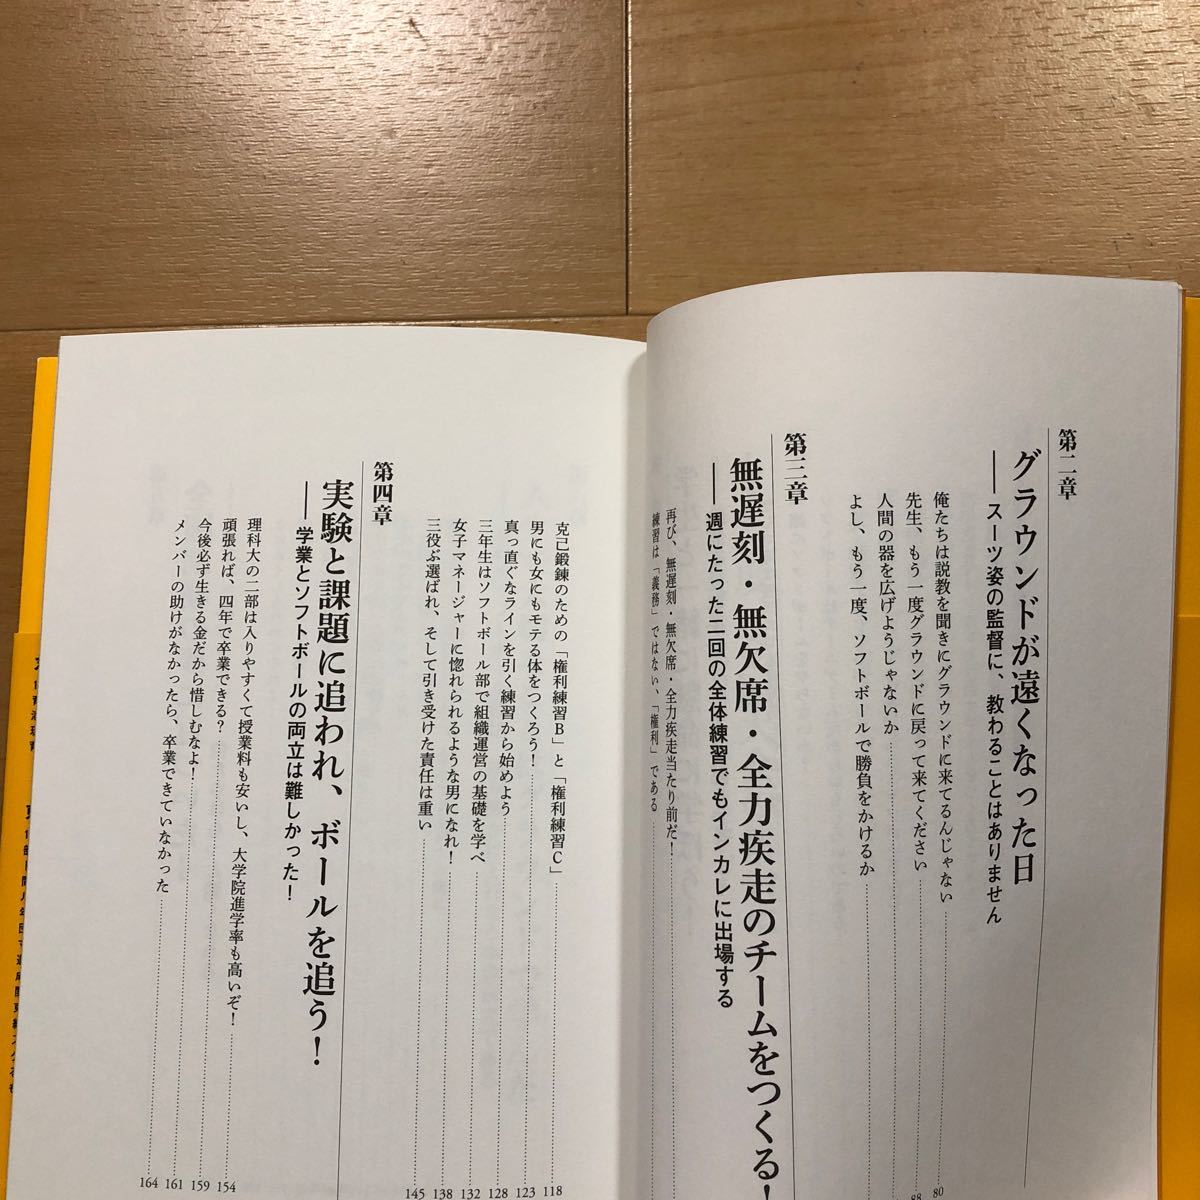 第二章
グラウンドが遠くなった日
――スーツ姿の監督に、教わることはありません
俺たちは説教を聞きにグラウンドに来てるんじゃない 80
先生、もう一度グラウンドに戻って来てください 88
人間の器を広げようじゃないか
よし、もう一度、ソフトボールで勝負をかけるか
第三章
無遅刻・無欠席・全力疾走のチームをつくる！
――週にたった二回の全体練習でもインカレに出場する
再び、無遅刻・無欠席・全力疾走当たり前だ！
練習は「義務」ではない、「権利」である
克己鍛錬のための「権利練習B」と「権利練習C」 118
男にも女にもモテる体をつくろう！ 123
真っ直ぐなラインを引く練習から始めよう 128
三年生はソフトボール部で組織運営の基礎を学べ 132
女子マネージャーに惚れられるような男になれ！ 138
三役ぶ選ばれ、そして引き受けた責任は重い 145
第四章
実験と課題に追われ、ボールを追う！
――学業とソフトボールの両立は難しかった！
理科大の二部は入りやすくて授業料も安いし、大学院進学率も高いぞ！ 154
頑張れば、四年で卒業できる？ 159
今後必ず生きる金だから惜しむなよ！ 161
メンバーの助けがなかったら、卒業できていなかった 164